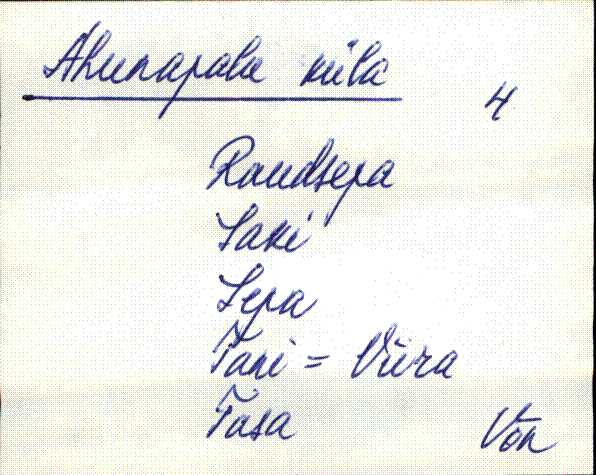 Ahunapalu küla
4
Raudsepa
Saki
Sepa
Tani = Viira
Tasa
Võn